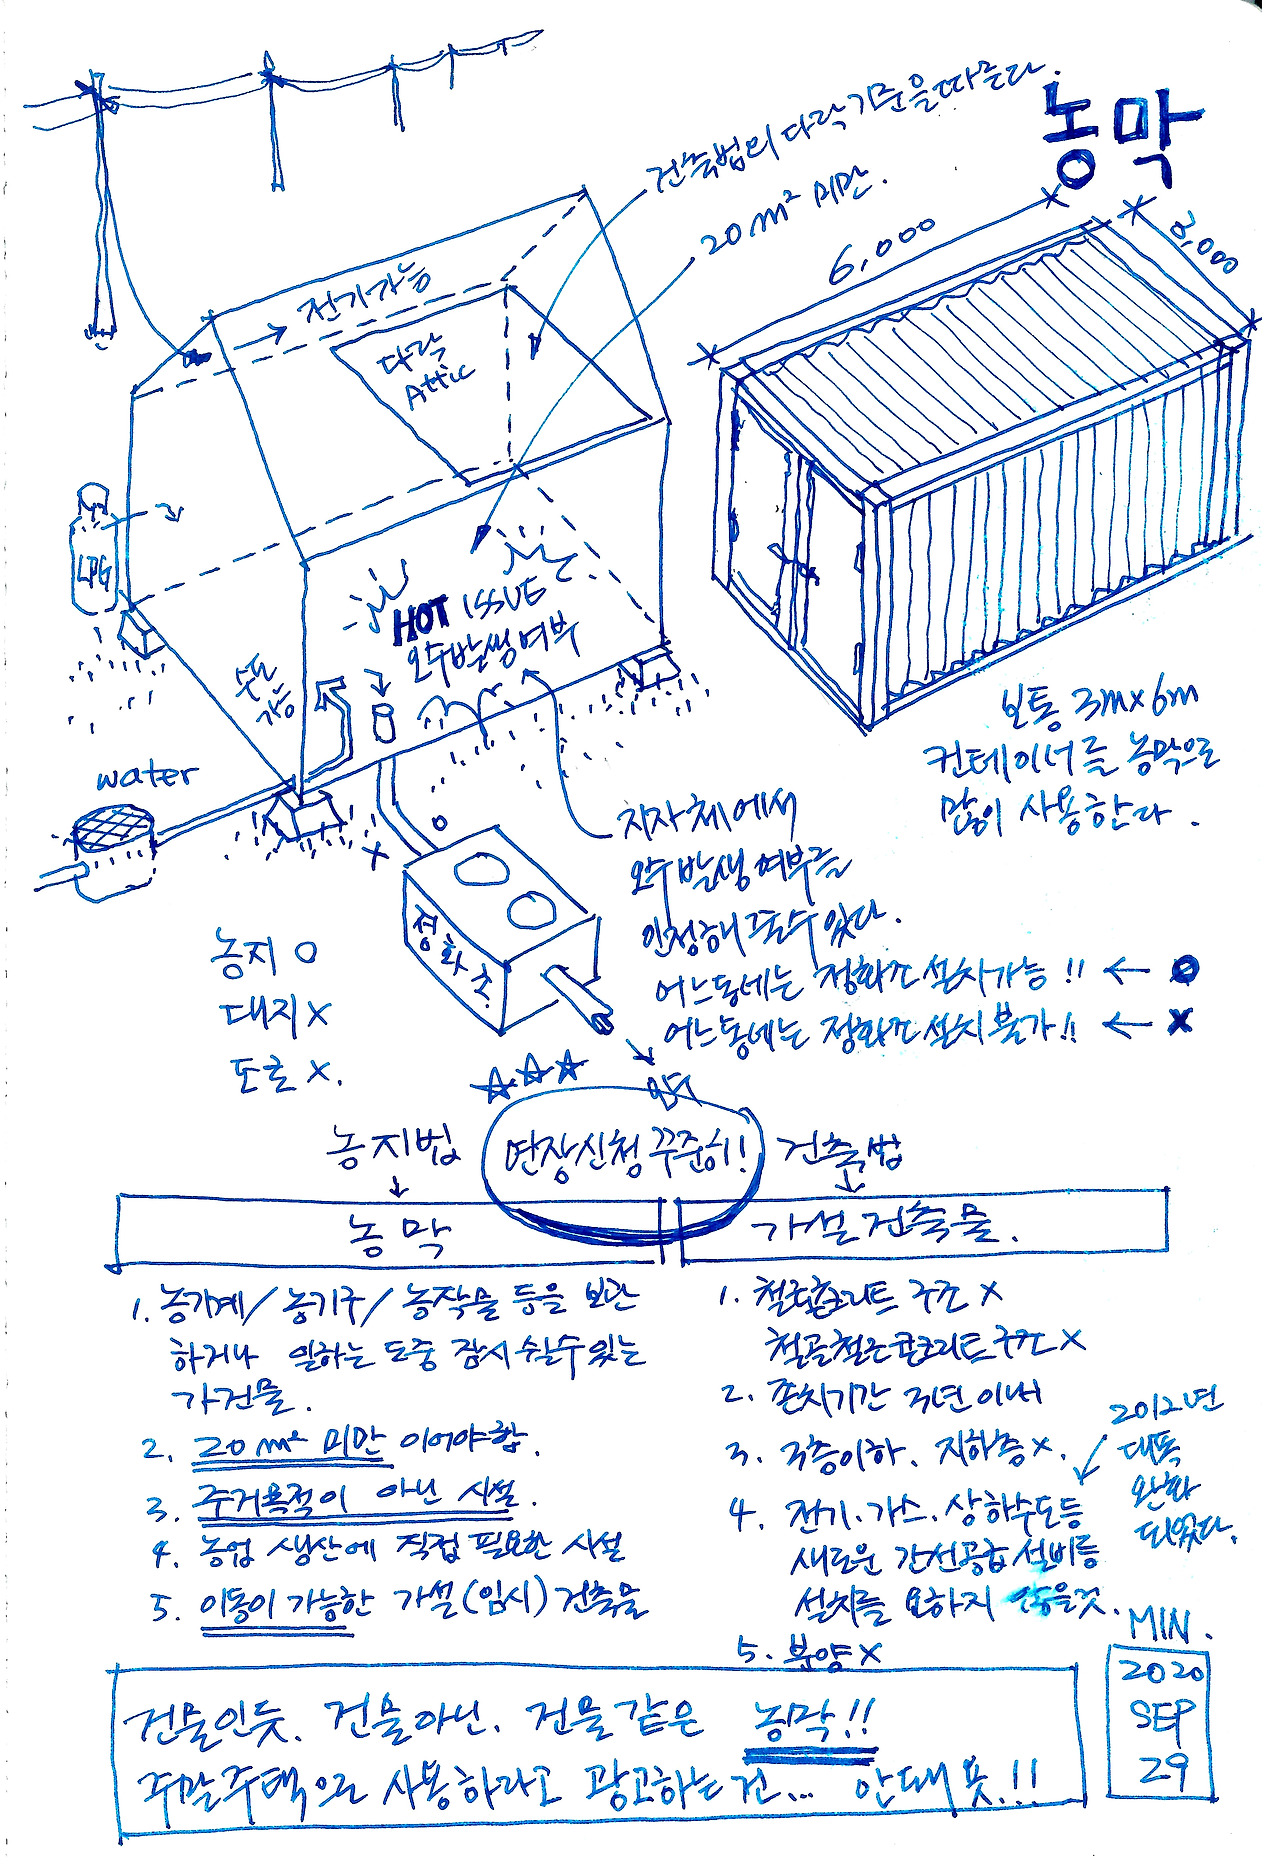 농막
건축법의 다락기준을따른다.
20m² 미만.
6,000
3,000
전기가능
다락
Attic
LPG
HOT ISSUE
오수발생여부
수도
가능
water
보통 3m×6m
컨테이너를 농막으로
많이 사용한다.
지자체에서
오수발생여부를
인정해 줄수 있다.
어느동네는 정화조설치가능!! ← O
어느동네는 정화조설치불가!! ← X
O
X
정화조
농지 O
대지 X
도로 X.
농지법
연장신청꾸준히!
건축법
농막
가설건축물.
1. 농기계/농기구/농작물 등을 보관
하거나 일하는 도중 잠시 쉴수있는
가건물.
2. 20m² 미만 이어야함.
3. 주거목적이 아닌 시설.
4. 농업 생산에 직접 필요한 시설
5. 이동이 가능한 가설(임시) 건축물
1. 철근콘크리트 구조 X
철골철근콘크리트구조 X
2. 존치기간 3년이내
3. 3층이하. 지하층 X.
4. 전기.가스.상하수도등
새로운 간선공급설비를
설치를 요하지 않을것.
5. 분양 X
2012년
대폭
완화
되었다.
건물인듯. 건물아닌. 건물같은 농막!!
주말주택으로 사용하라고 광고하는건... 안돼욧.!!
MIN.
2020
SEP
29